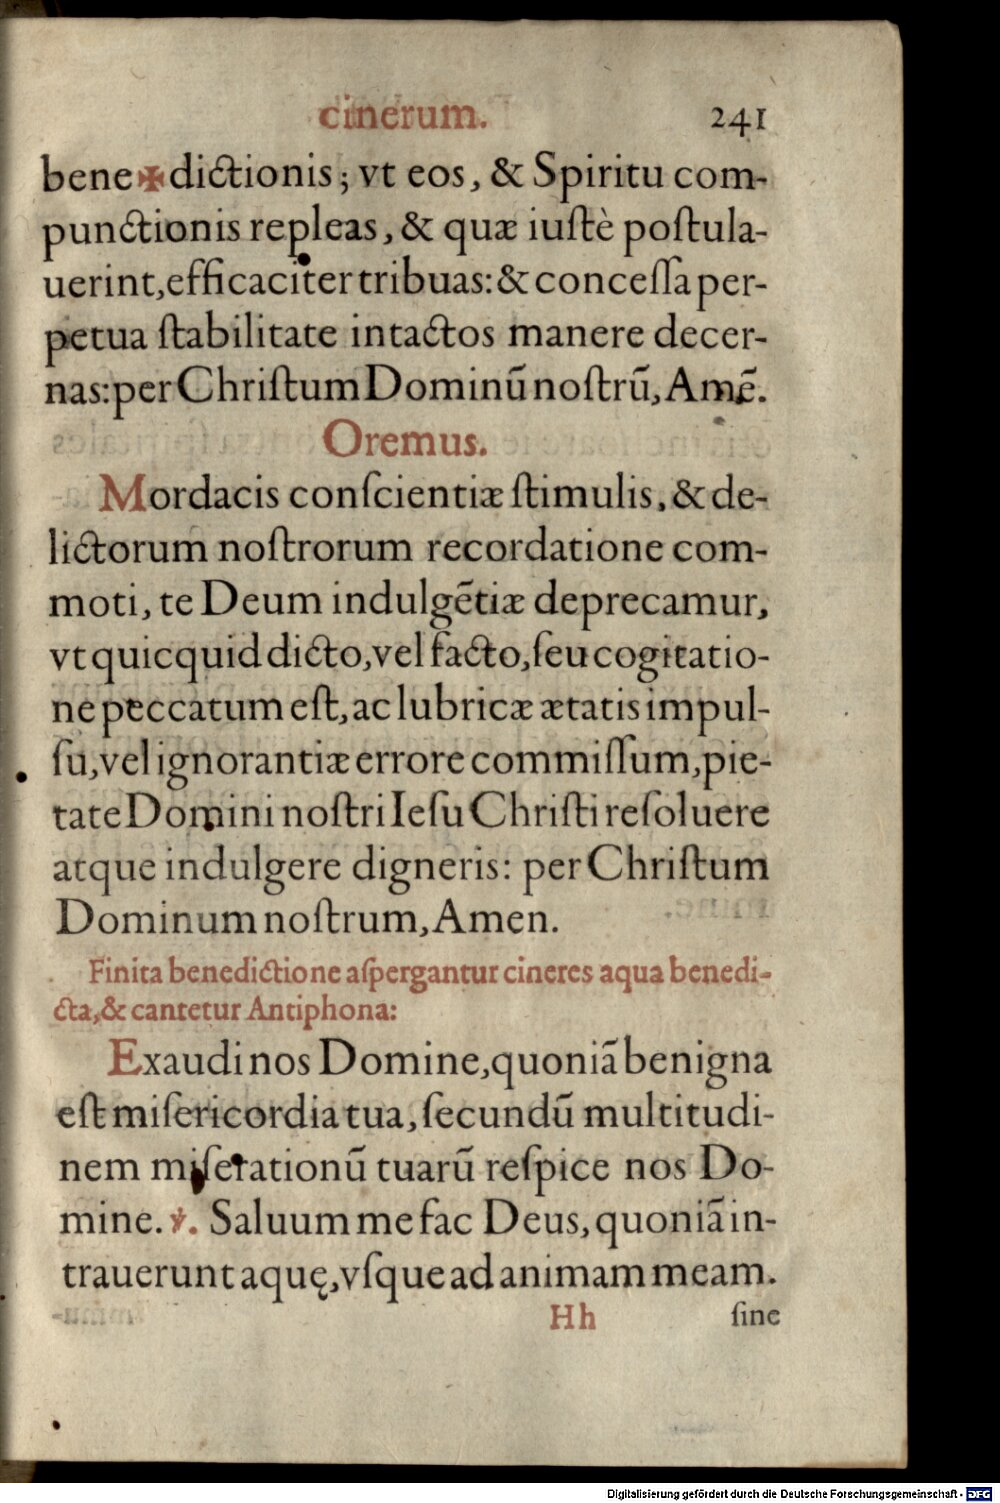 cinerum. 241
bene✠dictionis; vt eos, & Spiritu com-
punctionis repleas, & quæ iuſtè poſtula-
uerint, efficaciter tribuas: & conceſſa per-
petua ſtabilitate intactos manere decer-
nas: per Chriſtum Dominū noſtrū, Amē.
Oremus.
Mordacis conſcientiæ ſtimulis, & de-
lictorum noſtrorum recordatione com-
moti, te Deum indulgētiæ deprecamur,
vt quicquid dicto, vel facto, ſeu cogitatio-
ne peccatum eſt, ac lubricæ ætatis impul-
ſu, vel ignorantiæ errore commiſſum, pie-
tate Domini noſtri Ieſu Chriſti reſoluere
atque indulgere digneris: per Chriſtum
Dominum noſtrum, Amen.
Finita benedictione aſpergantur cineres aqua benedi-
cta, & cantetur Antiphona:
Exaudi nos Domine, quoniā benigna
eſt miſericordia tua, ſecundū multitudi-
nem miſerationū tuarū reſpice nos Do-
mine. ℣. Saluum me fac Deus, quoniā in-
trauerunt aquę, vſque ad animam meam.
Hh ſine
Digitalisierung gefördert durch die Deutsche Forschungsgemeinschaft - DFG